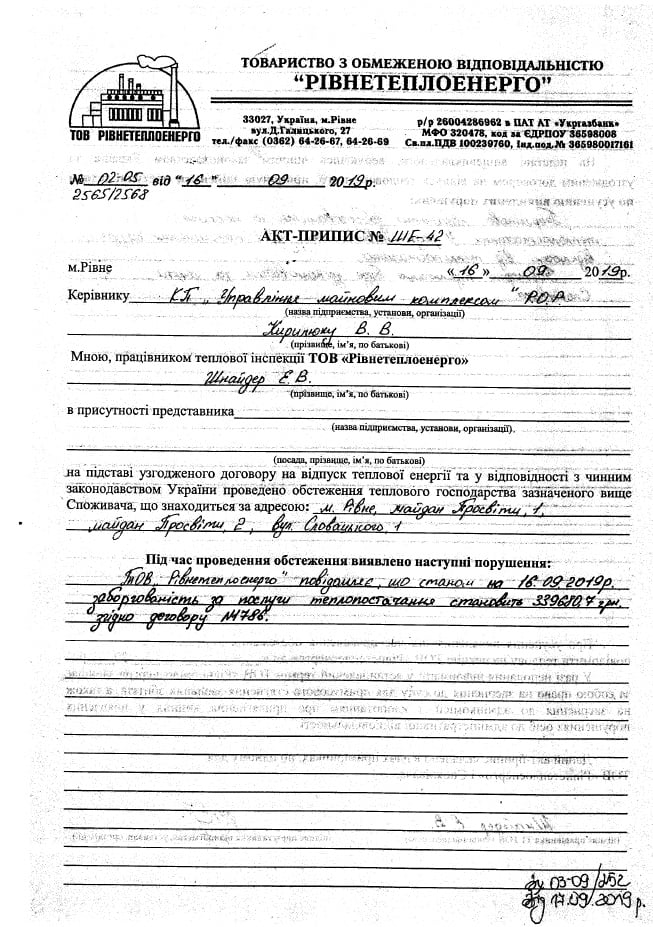 ТОВАРИСТВО З ОБМЕЖЕНОЮ ВІДПОВІДАЛЬНІСТЮ
“РІВНЕТЕПЛОЕНЕРГО”
ТОВ РІВНЕТЕПЛОЕНЕРГО
33027, Україна, м.Рівне
вул.Д.Галицького, 27
тел./факс (0362) 64-26-67, 64-26-69
р/р 26004286962 в ПАТ АТ «Укргазбанк»
МФО 320478, код за ЄДРПОУ 36598008
Св.пл.ПДВ 100239760, Інд.под.№ 365980017161
№ 02-05 від “16” 09 2019р.
2565/2568
АКТ-ПРИПИС № ШЕ-42
м.Рівне “16” 09. 2019р.
Керівнику КП „Управління майновим комплексом" Р.О.Р
(назва підприємства, установи, організації)
Кирилюку В. В.
(прізвище, ім’я, по батькові)
Мною, працівником теплової інспекції ТОВ «Рівнетеплоенерго»
Шнайдер Е.В.
(прізвище, ім’я, по батькові)
в присутності представника
(назва підприємства, установи, організації).
(посада, прізвище, ім’я, по батькові)
на підставі узгодженого договору на відпуск теплової енергії та у відповідності з чинним
законодавством України проведено обстеження теплового господарства зазначеного вище
Споживача, що знаходиться за адресою: м. Рівне, майдан Просвіти, 1,
майдан Просвіти 2, вул. Словацького, 1
Під час проведення обстеження виявлено наступні порушення:
ТОВ „Рівнетеплоенерго" повідомляє, що станом на 16.09.2019р.
заборгованість за послуги теплопостачання становить грн.
згідно договору №1786.
03-09/252
17.09.2019 р.